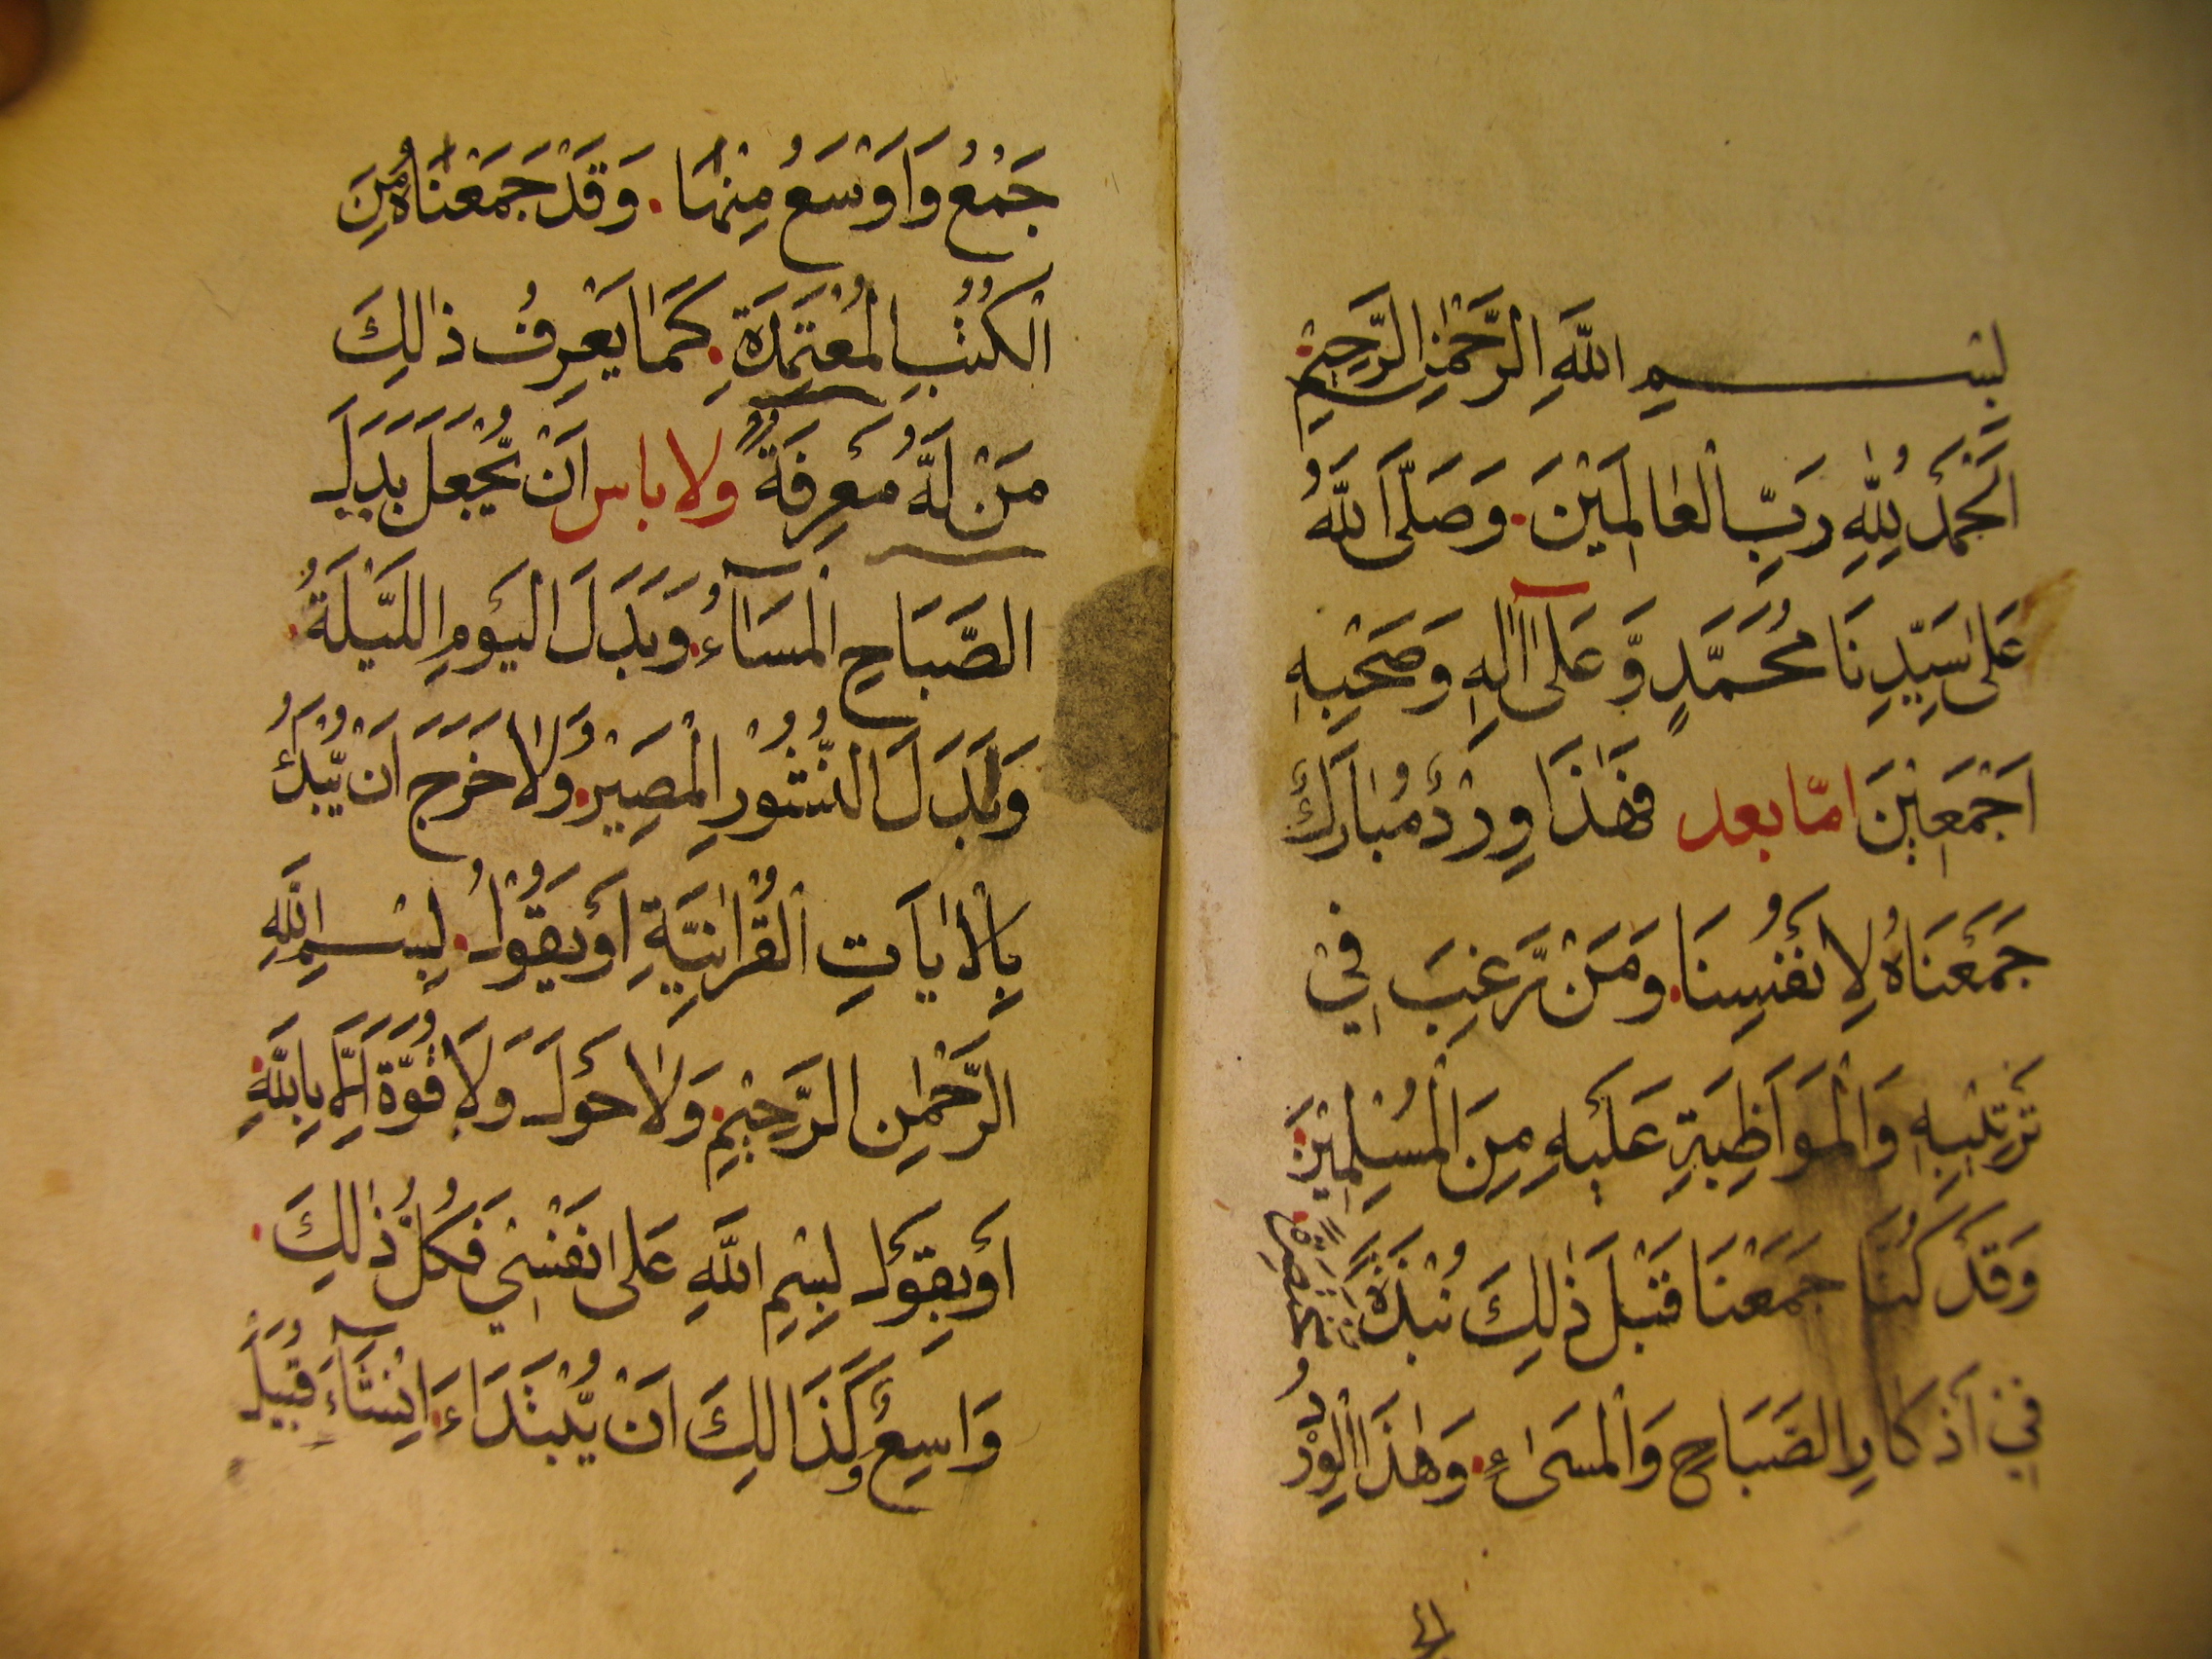 بِسْمِ اللَّهِ الرَّحْمٰنِ الرَّحِيْمِ
اَلْحَمْدُ لِلّٰهِ رَبِّ الْعَالَمِيْنَ. وَصَلَّى اللَّهُ
عَلٰى سَيِّدِنَا مُحَمَّدٍ وَّعَلٰى آلِهِ وَصَحْبِهِ
اَجْمَعِيْنَ امّا بعد فَهٰذَا وِرْدٌ مُبَارَكٌ
جَمَعْنَاهُ لِاَنْفُسِنَا. وَمَنْ رَّغِبَ فِيْ
تَرْتِيْبِهِ وَالْمَوَاظِبَةِ عَلَيْهِ مِنَ الْمُسْلِمِيْنَ.
وَقَدْ كُنَّا جَمَعْنَا قَبْلَ ذٰلِكَ نُبْذَةً مختصرة
فِيْ اَذْكَارِ الصَّبَاحِ وَالْمَسَاءِ. وَهٰذَا الْوِرْدُ
جَمْعُ وَاَوْسَعُ مِنْهَا. وَقَدْ جَمَعْنَاهُ مِنَ
الْكُتُبِ الْمُعْتَمَدَةِ. كَمَا يَعْرِفُ ذٰلِكَ
مَنْ لَهُ مَعْرِفَةٌ ولا باس اَنْ يُّجْعَلَ بَدَلَ
الصَّبَاحِ الْمَسَاءُ. وَبَدَلَ الْيَوْمِ اللَّيْلَةُ.
وَبَدَلَ النُّشُوْرِ الْمَصِيْرُ. وَلَا حَرَجَ اَنْ يُّبْدَأَ
بِالْاٰيَاتِ الْقُرْاٰنِيَّةِ اَوْ يَقُوْلُ. بِسْمِ اللَّهِ
الرَّحْمٰنِ الرَّحِيْمِ. وَلَا حَوْلَ وَلَا قُوَّةَ اِلَّا بِاللَّهِ.
اَوْ يَقُوْلَ بِسْمِ اللَّهِ عَلٰى نَفْسِيْ فَكُلُّ ذٰلِكَ.
وَاسِعٌ وَكَذَالِكَ اَنْ يُّبْتَدَاءَ. اِنْشَاءً قُبَيْلَ